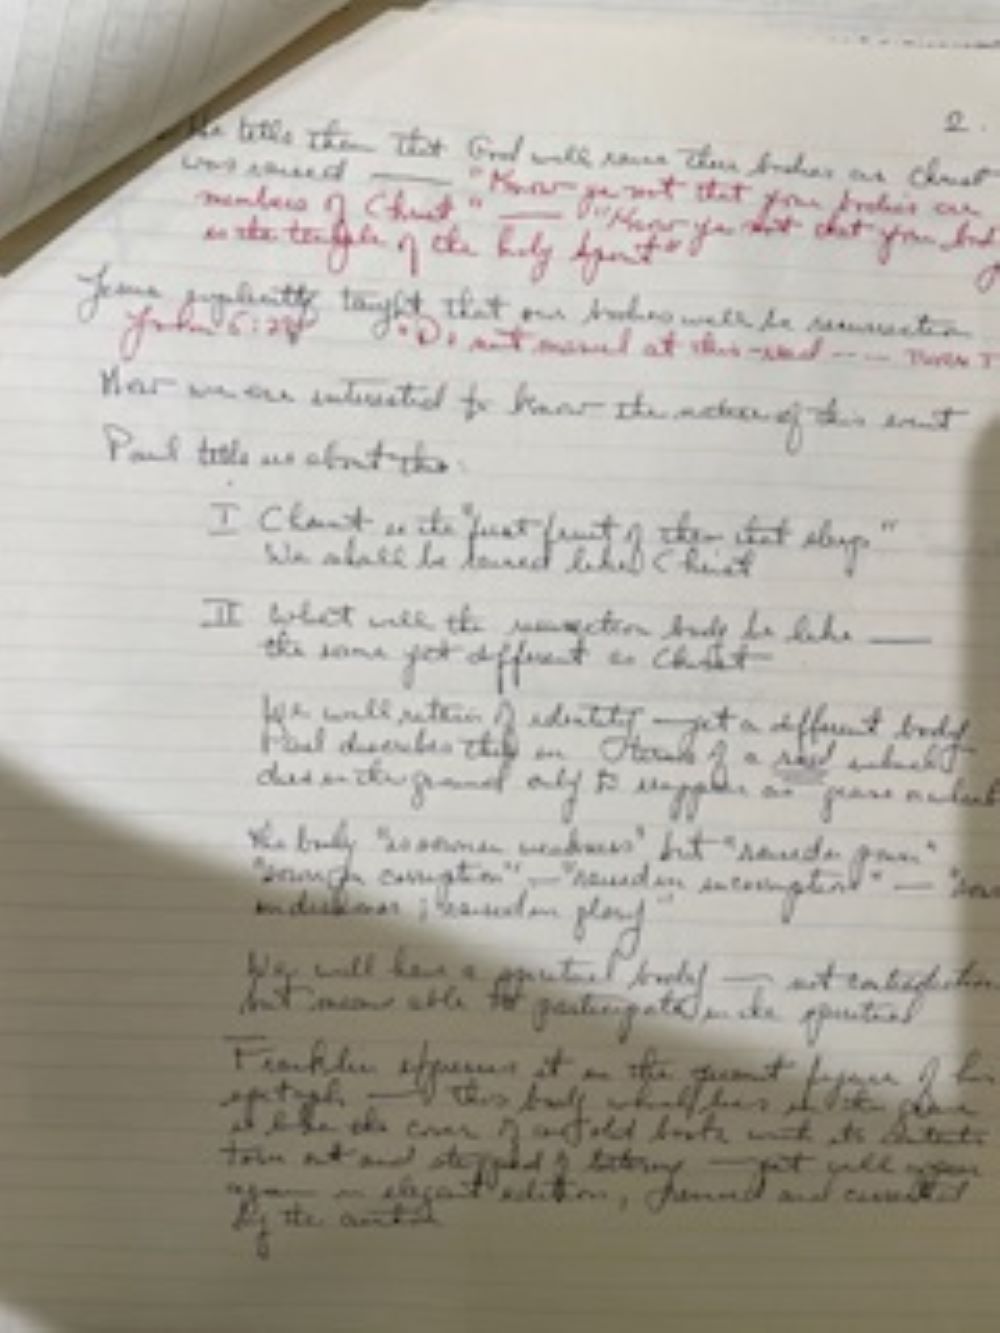 2.
He tells them that God will raise their bodies as Christ
was raised —— "Know ye not that your bodies are
members of Christ" —— "Know ye not that your bod
is the temple of the holy Spirit"
Jesus explicitly taught that our bodies will be resurrection
John 5:28 "Do not marvel at this
Now we are interested to know the nature of this event
Paul tells us about this:
I Christ is the "first fruit of them that sleep"
We shall be raised like Christ
II What will the resurrection body be like ——
the same yet different as Christ
We will retain identity — yet a different body
Paul describes this in terms of a seed which
dies in the ground only to reappear as
the body "is sown in weakness" but "raised in power"
"sown in corruption" — "raised in incorruption" — "sown
in dishonor; raised in glory"
We will have a spiritual body — not contradiction
but means able to participate in the spiritual
Franklin expresses it in the figure of his
epitaph — this body which lies in the grave
is like the cover of an old book with its contents
torn out and stripped of lettering — yet will appear
again in elegant edition, revised and corrected
by the author